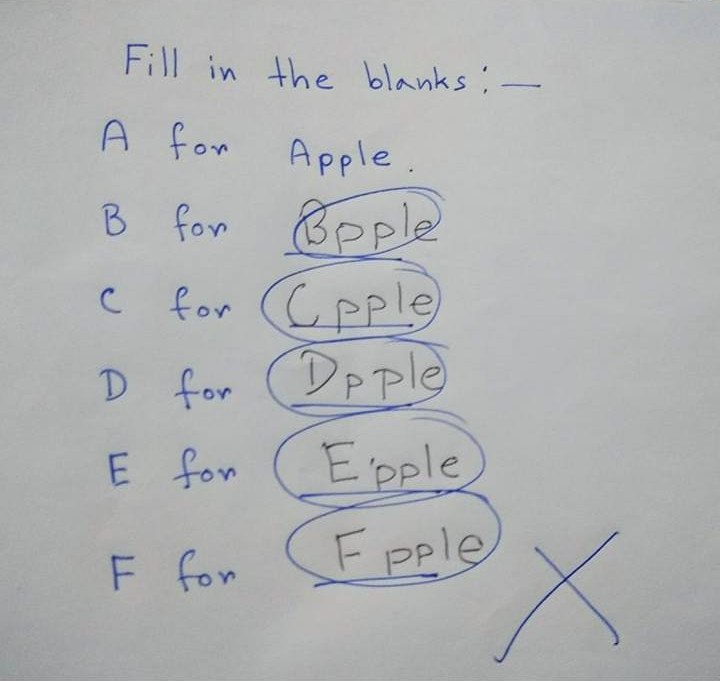 Fill in the blanks:—
A for Apple.
B for Bpple
C for Cpple
D for Dpple
E for E'pple
F for Fpple